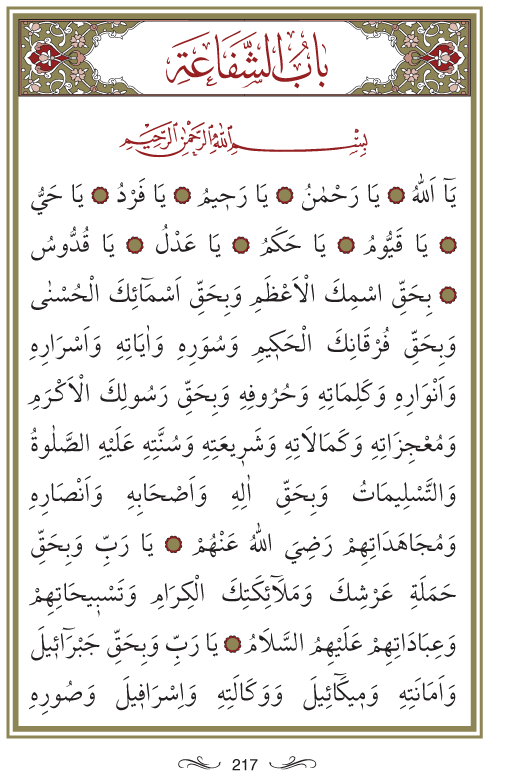 بَابُ الشَّفَاعَةِ
بِسْمِ اللّٰهِ الرَّحْمٰنِ الرَّحِيمِ
يَٓا اَللّٰهُ ۞ يَا رَحْمٰنُ ۞ يَا رَحٖيمُ ۞ يَا فَرْدُ ۞ يَا حَيُّ
۞ يَا قَيُّومُ ۞ يَا حَكَمُ ۞ يَا عَدْلُ ۞ يَا قُدُّوسُ
۞ بِحَقِّ اسْمِكَ الْاَعْظَمِ وَبِحَقِّ اَسْمَٓائِكَ الْحُسْنٰى
وَبِحَقِّ فُرْقَانِكَ الْحَكٖيمِ وَسُوَرِهِ وَاٰيَاتِهِ وَاَسْرَارِهِ
وَاَنْوَارِهِ وَكَلِمَاتِهِ وَحُرُوفِهِ وَبِحَقِّ رَسُولِكَ الْاَكْرَمِ
وَمُعْجِزَاتِهِ وَكَمَالَاتِهِ وَشَرٖيعَتِهِ وَسُنَّتِهِ عَلَيْهِ الصَّلٰوةُ
وَالتَّسْلِيمَاتُ وَبِحَقِّ اٰلِهِ وَاَصْحَابِهِ وَاَنْصَارِهِ
وَمُجَاهَدَاتِهِمْ رَضِيَ اللّٰهُ عَنْهُمْ ۞ يَا رَبِّ وَبِحَقِّ
حَمَلَةِ عَرْشِكَ وَمَلَٓائِكَتِكَ الْكِرَامِ وَتَسْبٖيحَاتِهِمْ
وَعِبَادَاتِهِمْ عَلَيْهِمُ السَّلَامُ ۞ يَا رَبِّ وَبِحَقِّ جَبْرَٓائٖيلَ
وَاَمَانَتِهِ وَمٖيكَٓائٖيلَ وَوَكَالَتِهِ وَاِسْرَافٖيلَ وَصُورِهِ
217